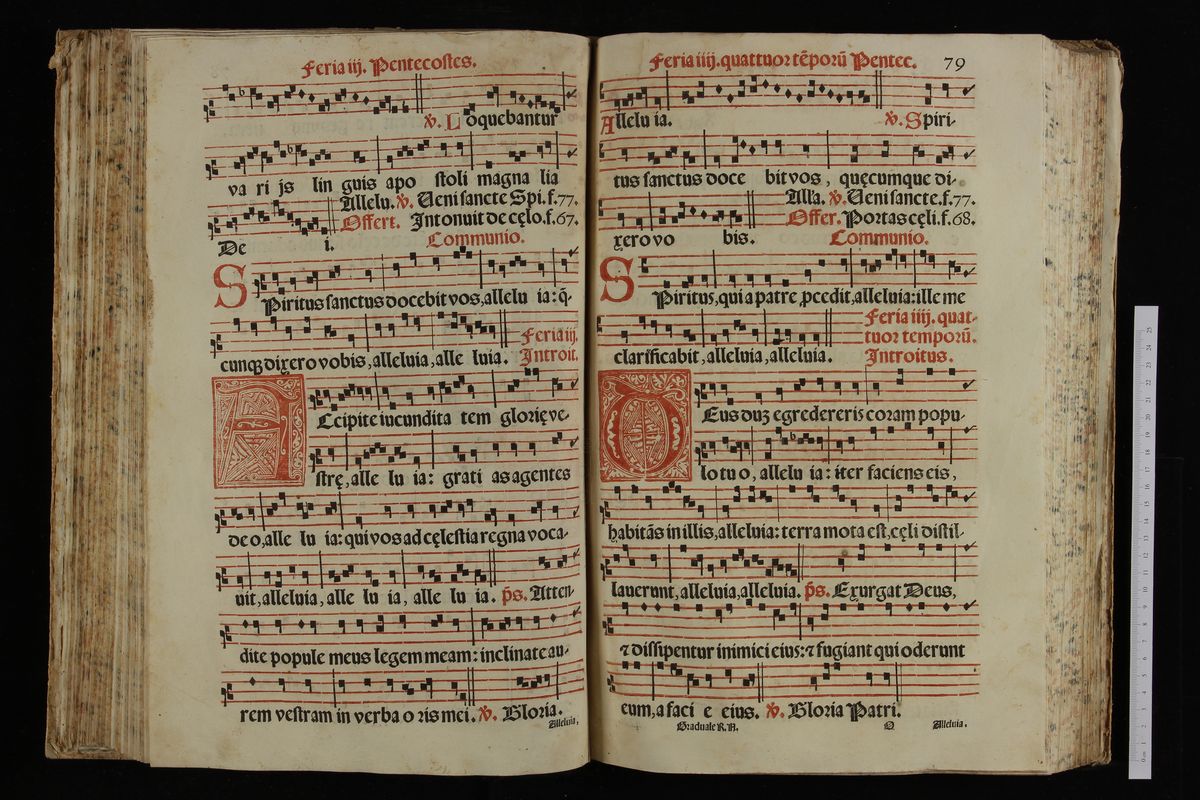 Feria iij. Pentecostes.
℣. Loquebantur
va ri js lin guis apo stoli magna lia
Allelu. ℣. Veni sancte Spi. f. 77.
Offert. Intonuit de cęlo. f. 67.
De i. Communio.
SPiritus sanctus docebit vos, allelu ia: q̃-
cunq; dixero vobis, alleluia, alle luia. Feria iij.
Introit.
ACcipite iucundita tem glorię ve-
strę, alle lu ia: grati as agentes
deo, alle lu ia: qui vos ad cęlestia regna voca-
uit, alleluia, alle lu ia, alle lu ia. p̃s. Atten-
dite popule meus legem meam: inclinate au-
rem vestram in verba o ris mei. ℣. Gloria.
Alleluia,
Feria iiij. quattuor tẽporũ Pentec. 79
Allelu ia. ℣. Spiri-
tus sanctus doce bit vos, quęcumque di-
All'a. ℣. Veni sancte. f. 77.
Offer. Portas cęli. f. 68.
xero vo bis. Communio.
SPiritus, qui a patre ꝓcedit, alleluia: ille me
Feria iiij. quat-
tuor temporũ.
clarificabit, alleluia, alleluia. Introitus.
DEus duʒ egredereris coram popu-
lo tu o, allelu ia: iter faciens eis,
habitãs in illis, alleluia: terra mota est, cęli distil-
lauerunt, alleluia, alleluia. p̃s. Exurgat Deus,
⁊ dissipentur inimici eius: ⁊ fugiant qui oderunt
eum, a faci e eius. ℣. Gloria Patri.
Graduale R. A. Alleluia.